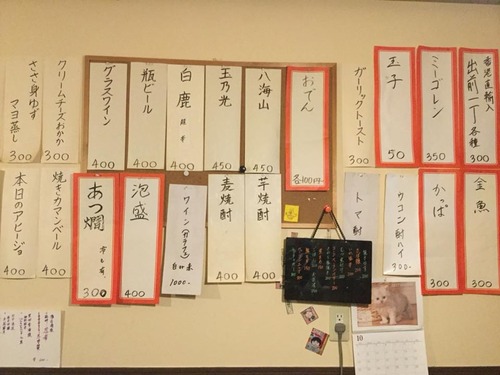 香港直輸入
出前一丁 各種
300
ミーゴレン
350
玉子
50
ガーリックトースト
300
おでん
各100円
八海山
450
玉乃光
450
白鹿
400
瓶ビール
400
グラスワイン
400
クリームチーズおかか
300
ささ身ゆず
マヨ蒸し
300
金魚
300
かっぱ
300
ウコン酎ハイ
300
トマ酎
芋焼酎
400
麦焼酎
400
ワイン(カラフェ)
白or赤
1000
泡盛
400
あつ燗
300
焼きカマンベール
400
本日のアヒージョ
400
10